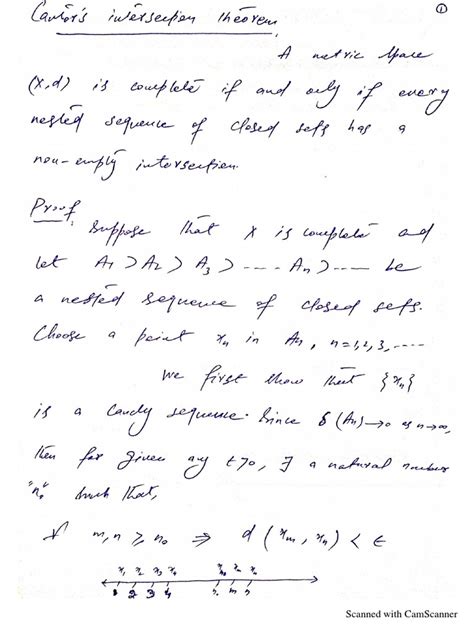 Cantor's intersection theorem. ①
A metric space
(X,d) is complete if and only if every
nested sequence of closed sets has a
non-empty intersection.
Proof. Suppose that X is complete and
let A₁ > A₂ > A₃ > ---- Aₙ > ---- be
a nested sequence of closed sets.
Choose a point xₙ in Aₙ, n=1,2,3,----
We first show that {xₙ}
is a Cauchy sequence. Since δ(Aₙ)→0 as n→∞,
then for given any ε>0, ∃ a natural number
"n₀" such that,
If m,n ≥ n₀ ⇒ d(xₘ, xₙ) < ε
x₁ x₂ x₃ x₄
1 2 3 4
Scanned with CamScanner